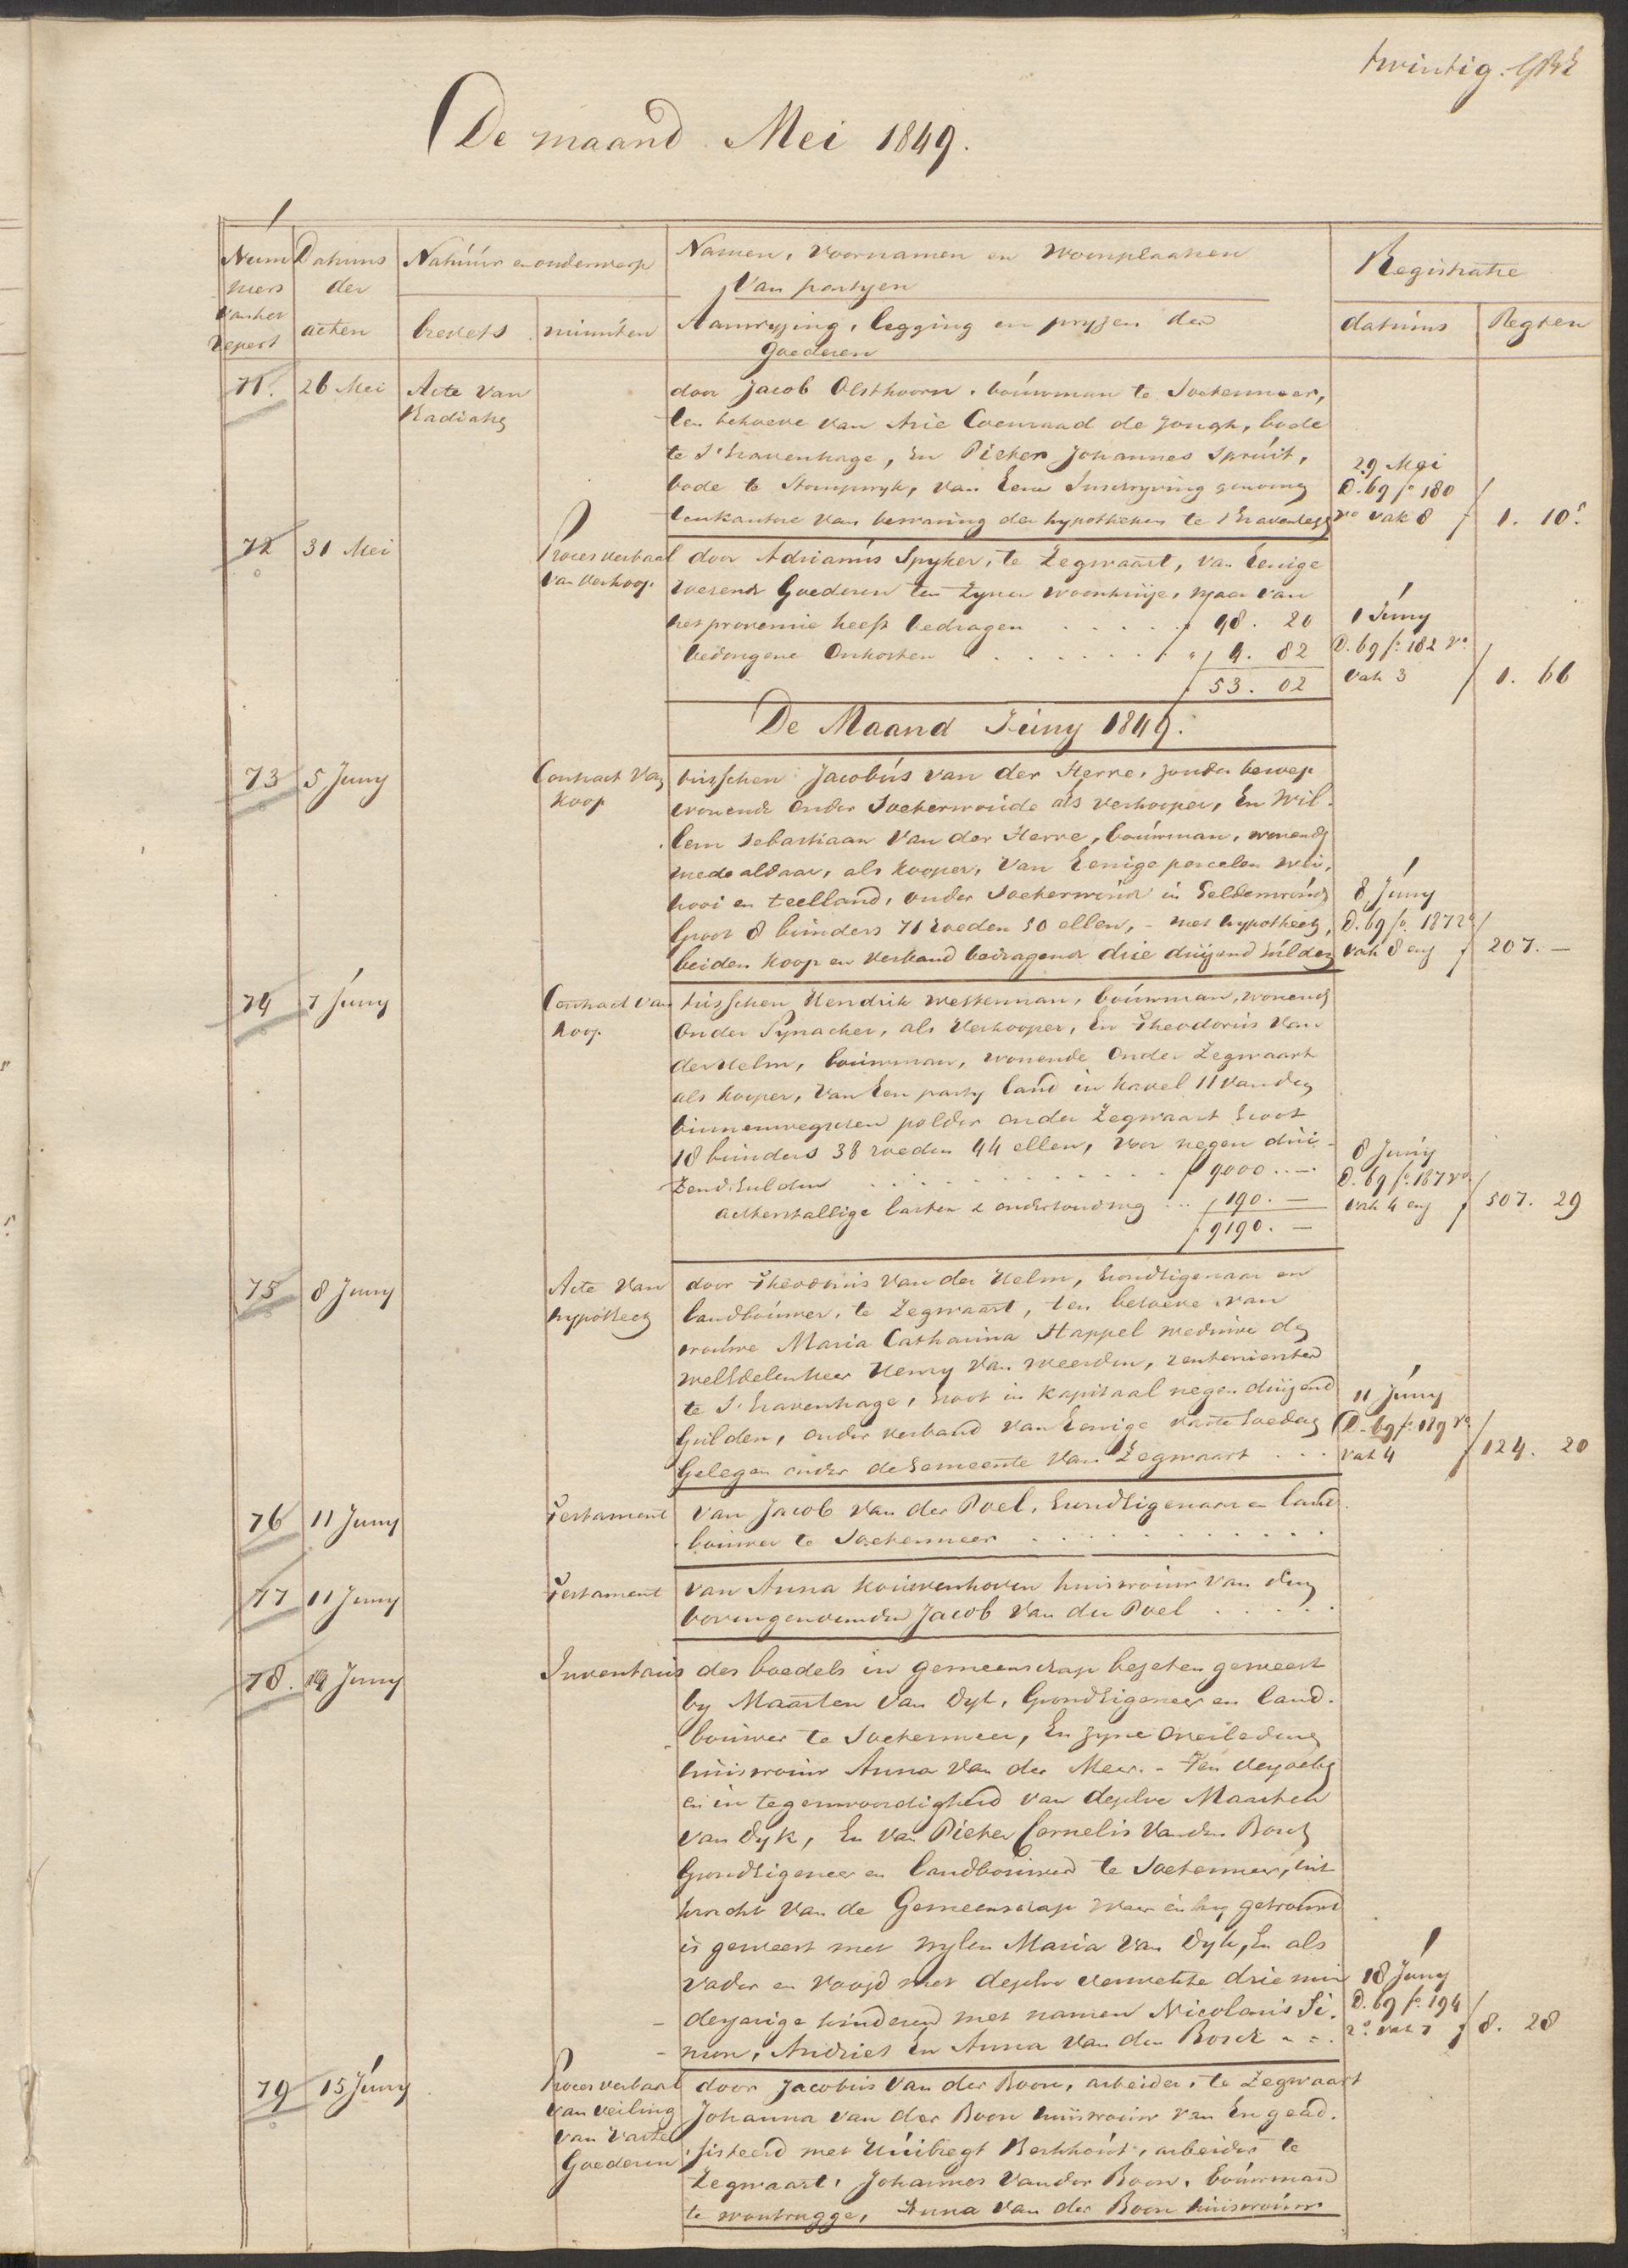 twintig.
De maand Mei 1849.
Num
mers
van het
repert
Datums
der
acten
Natuur en onderwerp
brevets
minuten
Namen, voornamen en woonplaatsen
van partyen
Aanwyzing, legging en pryzen der
Goederen
Registratie
datums
Regten
71. 26 Mei Acte van
Radiatie
door Jacob Olsthoorn, bouwman te Soetermeer,
ten behoeve van Arie Coenraad de Jongh, bode
te 's Gravenhage, en Pieter Johannes Spruit,
bode te Stompwyk, van Eene Inschryving genomen
tenkantore van bewaring der hypotheken te 's Gravenhage
29 Mei
D. 69 fo 180
vo vak 8 f 1. 10 5
72 31 Mei Proces verbaal
van verkoop
door Adrianus Spyker, te Zegwaart, van Eenige
roerende Goederen ten Zynen woonhuize, waar van
het provenue heeft bedragen f 48. 20
bedongene Onkosten " 4. 82
f 53. 02
1 Juny
D. 69 fo 182 vo
vak 3 f 1. 66
De Maand Juny 1849.
73 5 Juny Contract van
Koop
tusschen Jacobus van der Herve, zonder beroep
wonende Onder Soeterwoude als verkooper, En Wil-
lem Sebastiaan van der Herve, bouwman, wonende
mede aldaar, als kooper, van Eenige percelen wei,
hooi en teelland, onder Soeterwoude in Geldenwoude
Groot 8 bunders 71 roeden 50 ellen, - met hypotheek,
beiden koop en verband bedragende drie duizend Gulden
8 Juny
D. 69 fo 187 2o
vak 8 en f 207. -
74 7 Juny Contract van
Koop
tusschen Hendrik Westerman, bouwman, wonende
Onder Pynacker, als Verkooper, En Theodorus van
der Helm, bouwman, wonende Onder Zegwaart
als kooper, van Een party land in kavel 11 van den
binnenwegschen polder onder Zegwaart Groot
18 bunders 38 roeden 44 ellen, voor negen dui-
zend Gulden f 9000. -
achterstallige lasten & onderhouding " 190. -
f 9190. -
8 Juny
D. 69 fo 187 vo
vak 4 en f 507. 29
75 8 Juny Acte van
hypotheek
door Theodorus van der Helm, Grondeigenaar en
landbouwer, te Zegwaart, ten behoeve van
vrouwe Maria Catharina Happel weduwe den
welEdelen heer Henry van Weerden, rentenierster
te 's Gravenhage, Groot in kapitaal negen duizend
Gulden, onder verband van Eenige vaste Goederen
Gelegen onder de Gemeente van Zegwaart
11 Juny
D. 69 fo 189 vo
vak 4 f 124. 20
76 11 Juny Testament van Jacob van der Poel, Grondeigenaar en land-
bouwer te Soetermeer
77 11 Juny Testament van Anna Kouwenhoven huisvrouw van den
bovengenoemden Jacob van der Poel
78. 14 Juny Inventaris des boedels in gemeenschap bezeten geweest
by Maarten van Dyk, Grondeigeneer en land-
bouwer te Soetermeer, En zyne overledene
huisvrouw Anna van der Meer. - Ten verzoeke
en in tegenwoordigheid van dezelve Maarten
van Dyk, En van Pieter Cornelis van den Bosch
Grondeigeneer en landbouwer te Soetermeer, uit
kracht van de Gemeenschap waar in hy getrouwd
is geweest met wylen Maria van Dyk, En als
vader en voogd met dezelve verwekte drie min
derjarige kinderen met namen Nicolaus Si-
mon, Andries En Anna van den Bosch
18 Juny
D. 69 fo 194
2o vak 7 f 8. 28
79 15 Juny Proces verbaal
van veiling
van vaste
Goederen
door Jacobus van der Boon, arbeider, te Zegwaart
Johanna van der Boon huisvrouw van En gead-
sisteerd met Huibregt Berkhout, arbeider te
Zegwaart, Johannes van der Boon, bouwman
te Woubrugge, Anna van der Boon huisvrouw